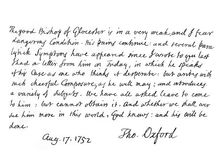 The good Bishop of Glocester is in a very weak, and I fear
dangerous Condition. His pains continue: and several fresh
Symptoms have appeared since I wrote to you last
had a letter from him on Friday, in which he speaks
of his Case as one who thinks it desperate: but writes with
such cheerful Composure, as he will may; and introduces
a variety of subjects. We have all asked leave to come
to him: but cannot obtain it. And whether we shall ever
see him more in this world, God knows: and his will be
done.
Aug. 17. 1752
Tho. Oxford